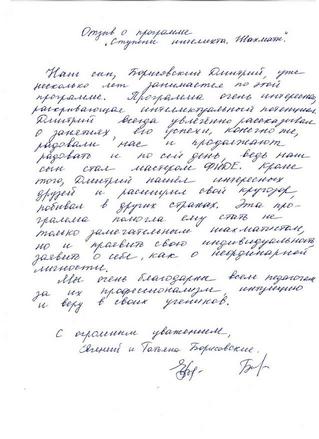 Отзыв о программе
„Ступени интеллекта. Шахматы“.
Наш сын, Борисовский Дмитрий, уже
несколько лет занимается по этой
программе. Программа очень интересная,
раскрывающая интеллектуальный потенциал.
Дмитрий всегда увлечённо рассказывал
о занятиях, его успехи, конечно же,
радовали нас и продолжают
радовать и по сей день, ведь наш
сын стал мастером ФИДЕ. Кроме
того, Дмитрий нашёл интересных
друзей и расширил свой кругозор,
побывал в других странах. Эта про-
грамма помогла ему стать не
только замечательным шахматистом,
но и проявить свою индивидуальность,
заявить о себе, как о неординарной
личности.
Мы очень благодарны всем педагогам
за их профессионализм, интуицию
и веру в своих учеников.
С огромным уважением,
Евгений и Татьяна Борисовские.